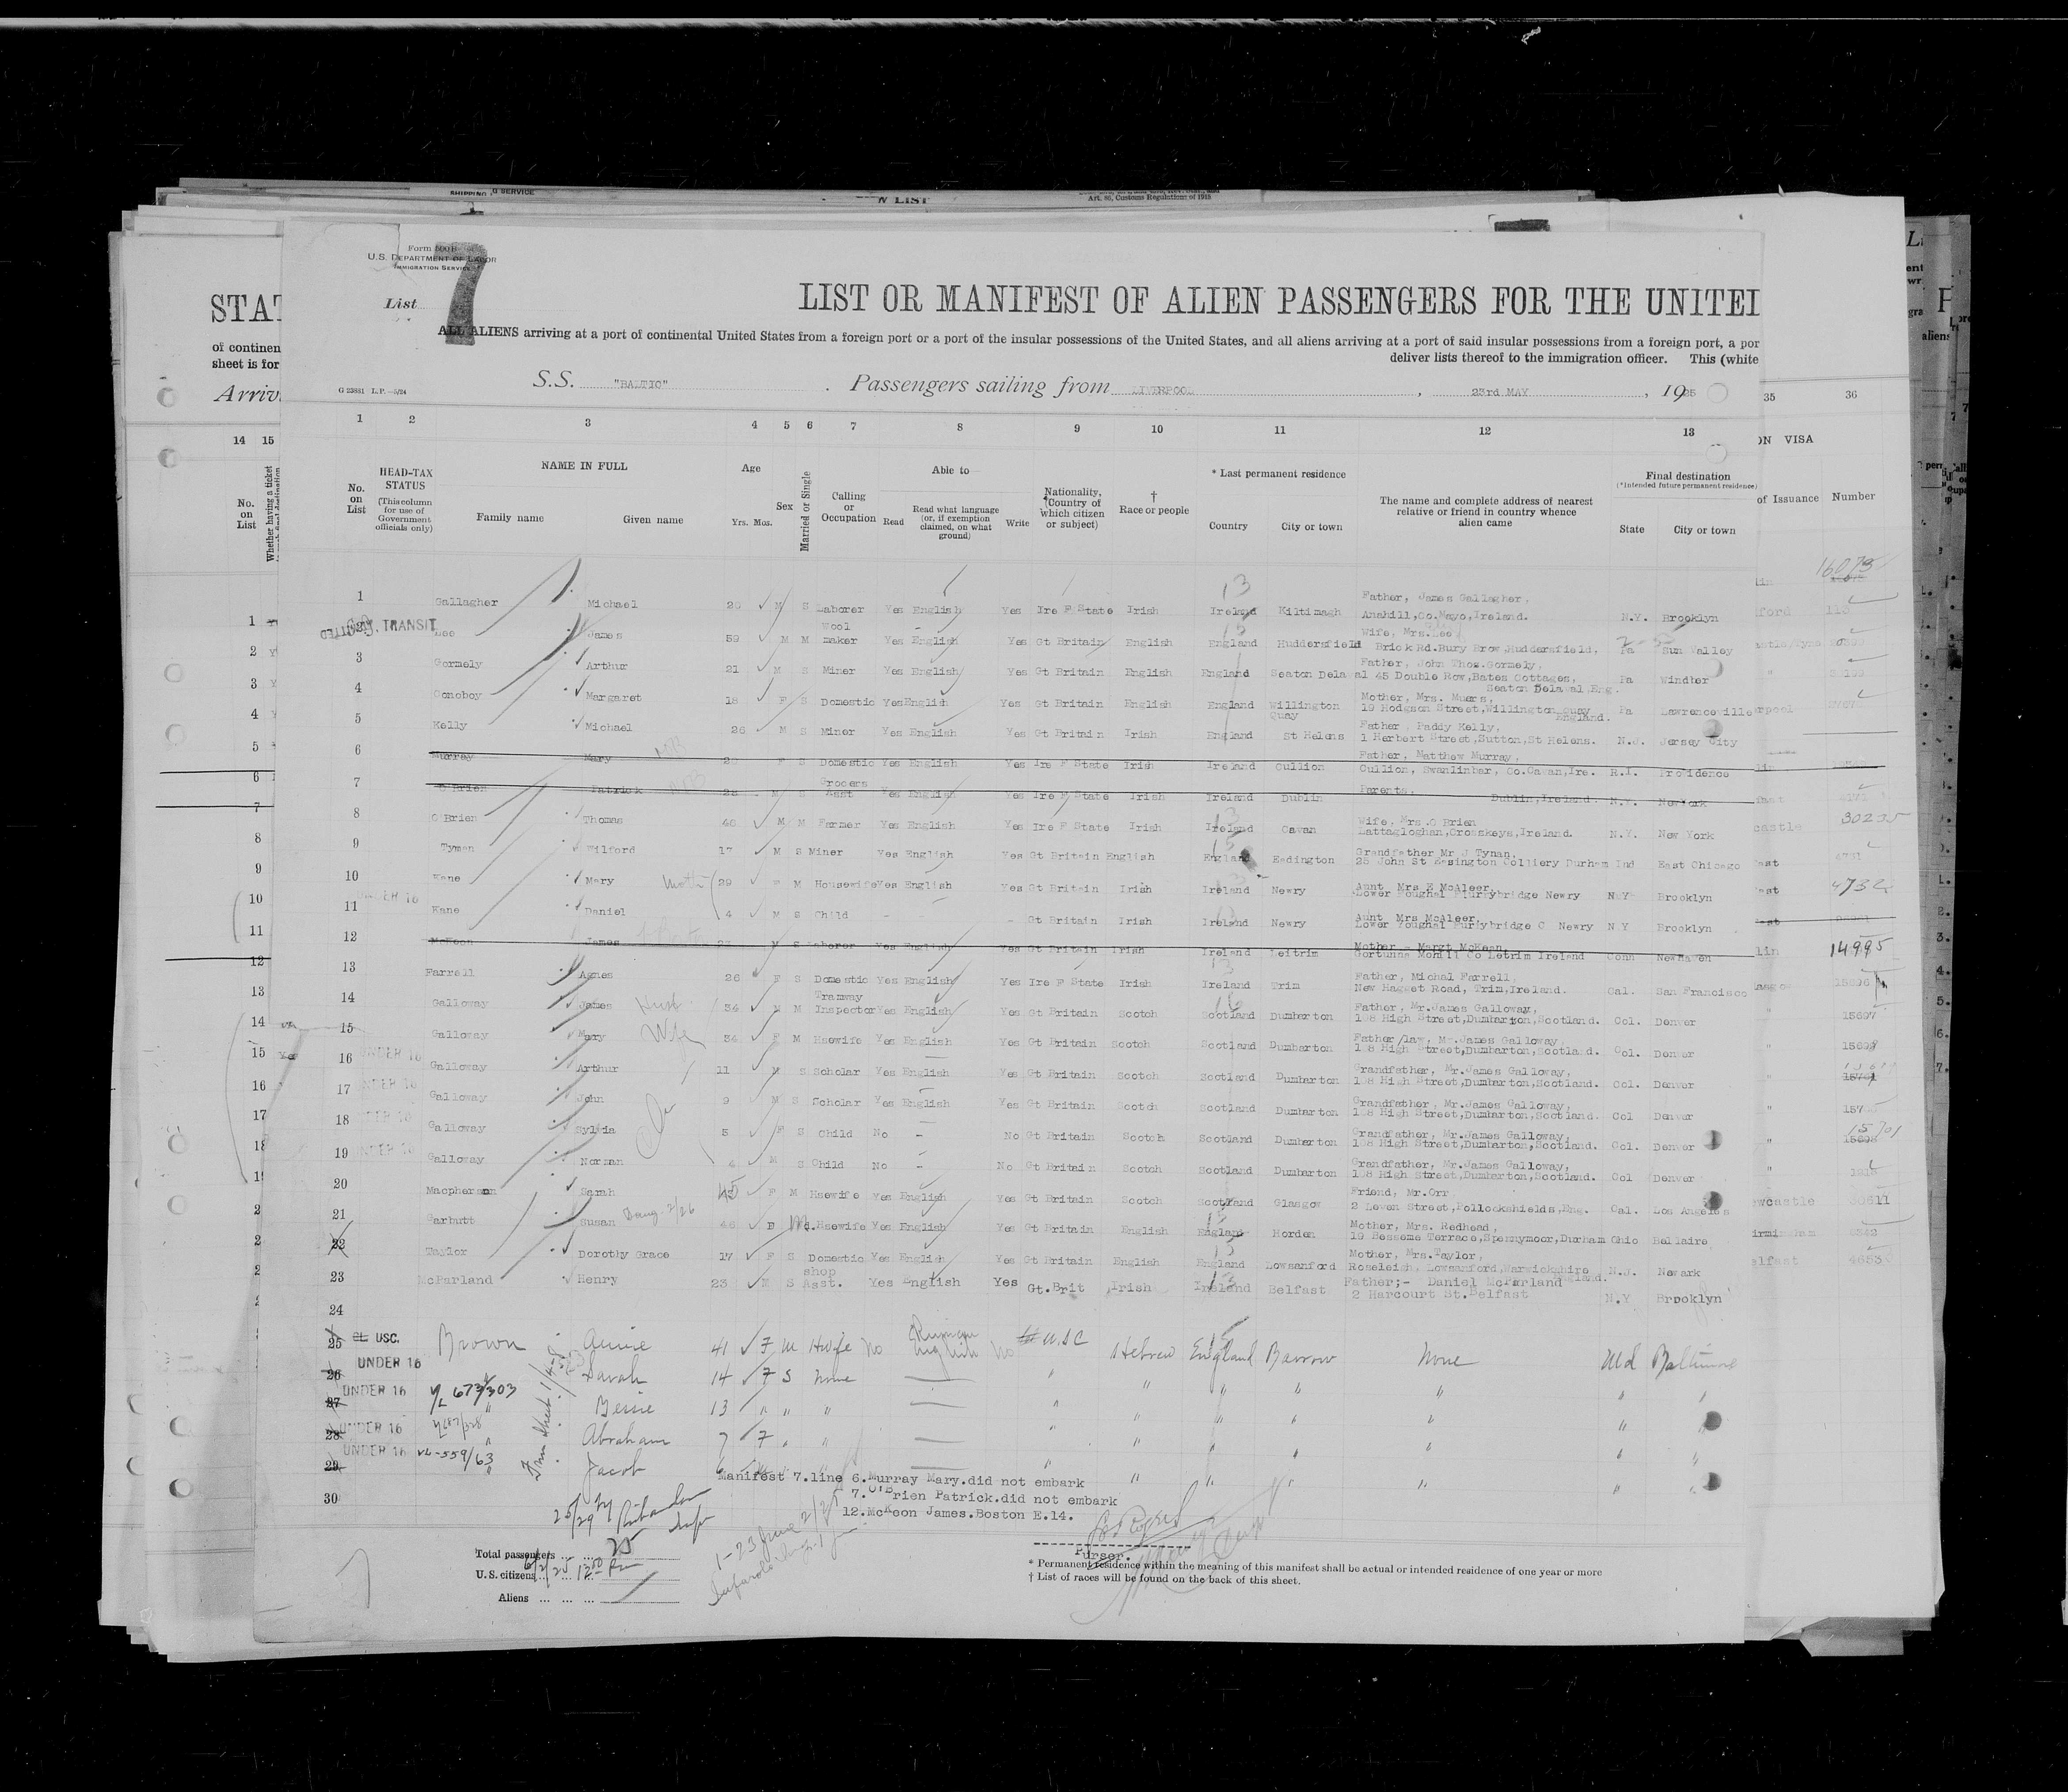 SHIPPING G SERVICE
W LIST
Art. 86, Customs Regulations of 1915
Form 500 B
U.S. DEPARTMENT OF LABOR
IMMIGRATION SERVICE
List 7
LIST OR MANIFEST OF ALIEN PASSENGERS FOR THE UNITED
ALL ALIENS arriving at a port of continental United States from a foreign port or a port of the insular possessions of the United States, and all aliens arriving at a port of said insular possessions from a foreign port, a por
deliver lists thereof to the immigration officer. This (white
STAT
of continen
sheet is for
Arriv
G 23881 L.P.—5/24
S.S. "BALTIC" . Passengers sailing from LIVERPOOL , 23rd MAY , 1925
1 2 3 4 5 6 7 8 9 10 11 12 13 35 36
14 15
ON VISA
No. on List
Whether having a ticket
No. on List
HEAD-TAX STATUS
(This column for use of Government officials only)
NAME IN FULL
Family name Given name
Age
Yrs. Mos.
Sex
Married or Single
Calling or Occupation
Able to
Read
Read what language (or, if exemption claimed, on what ground)
Write
Nationality, (Country of which citizen or subject)
† Race or people
* Last permanent residence
Country City or town
The name and complete address of nearest relative or friend in country whence alien came
Final destination
(*Intended future permanent residence)
State City or town
of Issuance Number
16073
1 Gallagher Michael 20 M S Laborer Yes English Yes Ire F State Irish Ireland Kiltimagh Father, James Gallagher, Anahill,Co.Mayo,Ireland. N.Y. Brooklyn
TRANSIT Lee James 59 M M Wool maker Yes English Yes Gt Britain English England Huddersfield Wife, Mrs.Lee Brick Rd.Bury Brow,Huddersfield, Pa Sun Valley
3 Gormely Arthur 21 M S Miner Yes English Yes Gt Britain English England Seaton Delaval Father, John Thos.Gormely, 45 Double Row,Bates Cottages, Seaton Delaval Eng. Pa Windber
4 Conoboy Margaret 18 F S Domestic Yes English Yes Gt Britain English England Willington Quay Mother, Mrs. Muers, 19 Hodgson Street,Willington Quay England. Pa Lawrenceville
5 Kelly Michael 26 M S Miner Yes English Yes Gt Britain Irish England St Helens Father, Paddy Kelly, 1 Herbert Street,Sutton,St Helens. N.J. Jersey City
6 Murray Mary F S Domestic Yes English Yes Ire F State Irish Ireland Cullion Father, Matthew Murray, Cullion, Swanlinbar, Co.Cavan,Ire. R.I. Providence
7 O'Brien Patrick M S Grocers Asst Yes English Yes Ire F State Irish Ireland Dublin Parents. Dublin,Ireland. N.Y. New York
8 O'Brien Thomas 40 M M Farmer Yes English Yes Ire F State Irish Ireland Cavan Wife, Mrs.O Brien Lattagloghan,Crosskeys,Ireland. N.Y. New York 30235
9 Tyman Wilford 17 M S Miner Yes English Yes Gt Britain English England Eadington Grandfather Mr J Tynan, 25 John St Easington Colliery Durham Ind East Chicago
10 Kane Mary 29 F M Housewife Yes English Yes Gt Britain Irish Ireland Newry Aunt Mrs E McAleer, Lower Foughal Flurrybridge Newry N Y Brooklyn 4732
UNDER 16
11 Kane Daniel 4 M S Child - - - Gt Britain Irish Ireland Newry Aunt Mrs McAleer, Lower Foughal Flurrybridge C Newry N Y Brooklyn
12 McKeon James M S Laborer Yes English Yes Gt Britain Irish Ireland Leitrim Mother - Margt McKeon, Gortunna Mohill Co Letrim Ireland Conn NewHaven 14995
13 Farrell Agnes 26 F S Domestic Yes English Yes Ire F State Irish Ireland Trim Father, Michal Farrell, New Hagget Road, Trim,Ireland. Cal. San Francisco
14 Galloway James Husb 34 M M Tramway Inspector Yes English Yes Gt Britain Scotch Scotland Dumbarton Father, Mr.James Galloway, 108 High Street,Dumbarton,Scotland. Col. Denver 15697
15 Galloway Mary Wife 34 F M Hsewife Yes English Yes Gt Britain Scotch Scotland Dumbarton Father/law, Mr.James Galloway 108 High Street,Dumbarton,Scotland. Col. Denver
16 UNDER 16 Galloway Arthur 11 M S Scholar Yes English Yes Gt Britain Scotch Scotland Dumbarton Grandfather, Mr.James Galloway, 108 High Street,Dumbarton,Scotland. Col. Denver
17 UNDER 16 Galloway John 9 M S Scholar Yes English Yes Gt Britain Scotch Scotland Dumbarton Grandfather, Mr.James Galloway, 108 High Street,Dumbarton,Scotland. Col Denver
18 UNDER 16 Galloway Sylvia 5 F S Child No - No Gt Britain Scotch Scotland Dumbarton Grandfather, Mr.James Galloway, 108 High Street,Dumbarton,Scotland. Col. Denver 15701
19 UNDER 16 Galloway Norman 4 M S Child No - No Gt Britain Scotch Scotland Dumbarton Grandfather, Mr.James Galloway, 108 High Street,Dumbarton,Scotland. Col Denver
20 Macpherson Sarah 45 F M Hsewife Yes English Yes Gt Britain Scotch Scotland Glasgow Friend, Mr.Orr 2 Leven Street,Pollockshields,Eng. Cal. Los Angeles 30611
21 Garbutt Susan 46 F Wd. Hsewife Yes English Yes Gt Britain English England Horden Mother, Mrs. Redhead, 19 Besseme Terrace,Spennymoor,Durham Ohio Bellaire
22 Taylor Dorothy Grace 17 F S Domestic Yes English Yes Gt Britain English England Lowsanford Mother, Mrs.Taylor, Roseleigh, Lowsanford,Warwickshire England. N.J. Newark
23 McFarland Henry 23 M S shop Asst. Yes English Yes Gt.Brit Irish Ireland Belfast Father;- Daniel McFarland 2 Harcourt St.Belfast N.Y Brooklyn
24
25 USC. Brown Annie 41 F M Hwife No No U.S.C Hebrew England Barrow None Md Baltimore
26 UNDER 16 Sarah 14 F S None " " " " " " "
27 UNDER 16 " Bessie 13 " " " " " " " " " "
28 UNDER 16 " Abraham 7 F " " " " " " " " "
29 UNDER 16 " Jacob 6 " " " " " " "
30
Manifest 7.line 6.Murray Mary.did not embark
7.O'Brien Patrick.did not embark
12.McKeon James.Boston E.14.
Purser.
Total passengers ... 25
U.S. citizens ...
Aliens ... ... ...
* Permanent residence within the meaning of this manifest shall be actual or intended residence of one year or more
† List of races will be found on the back of this sheet.